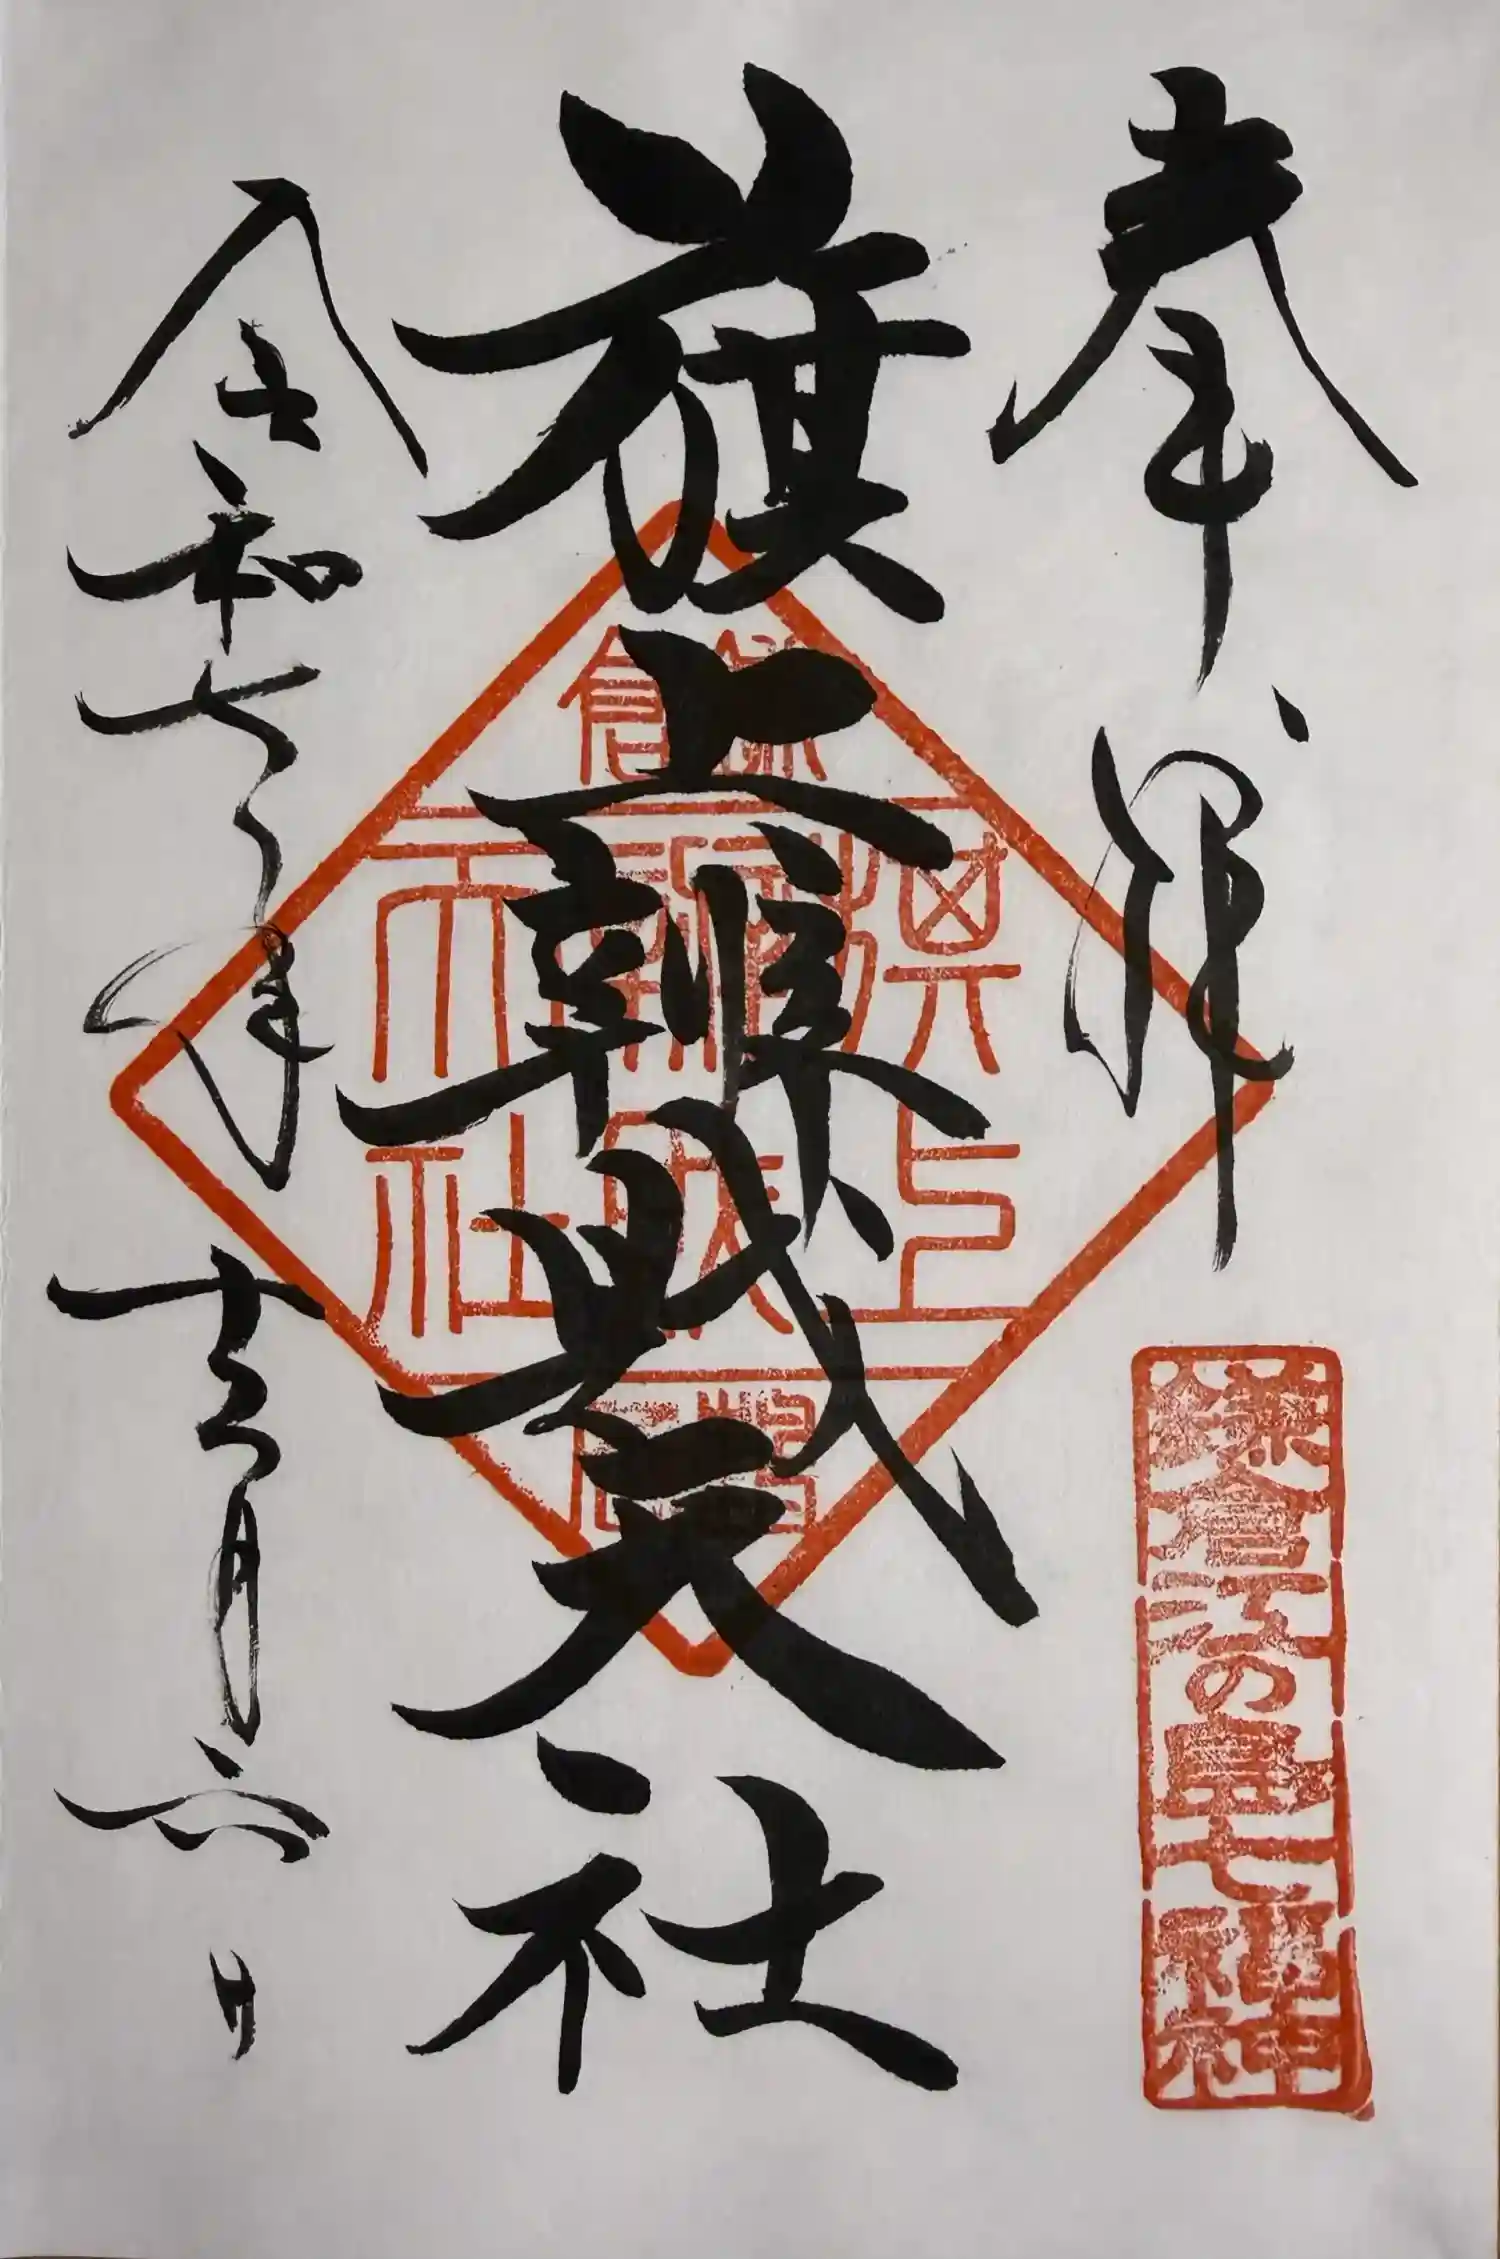 奉拝
鎌倉江の島七福神
旗上辨財天社
鎌倉
旗上辨財天社
鶴岡
令和七年十二月六日